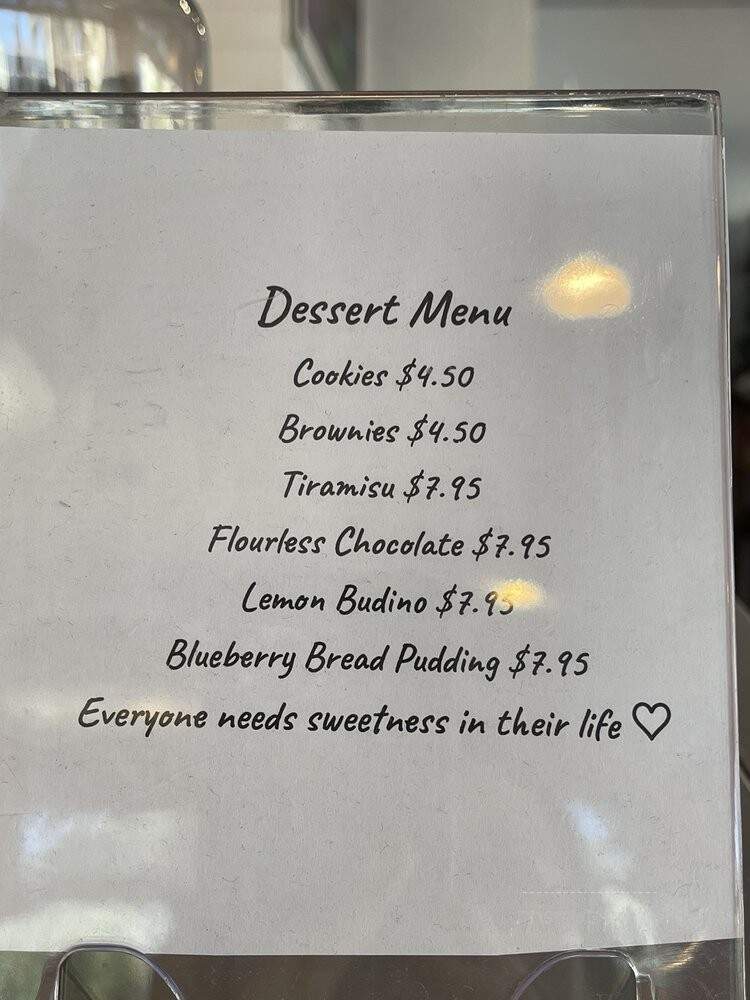 Dessert Menu
Cookies $4.50
Brownies $4.50
Tiramisu $7.95
Flourless Chocolate $7.95
Lemon Budino $7.95
Blueberry Bread Pudding $7.95
Everyone needs sweetness in their life ♡